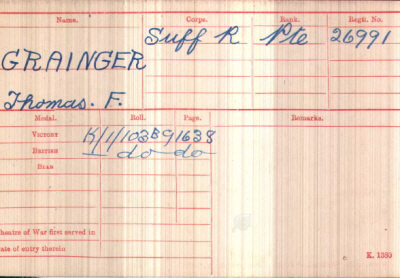 Name. Corps. Rank. Regtl. No.
Suff R Pte 26991
GRAINGER
Thomas. F.
Medal. Roll. Page. Remarks.
VICTORY K/1/103B9 1638
BRITISH do do
STAR
Theatre of War first served in
Date of entry therein
K. 1380